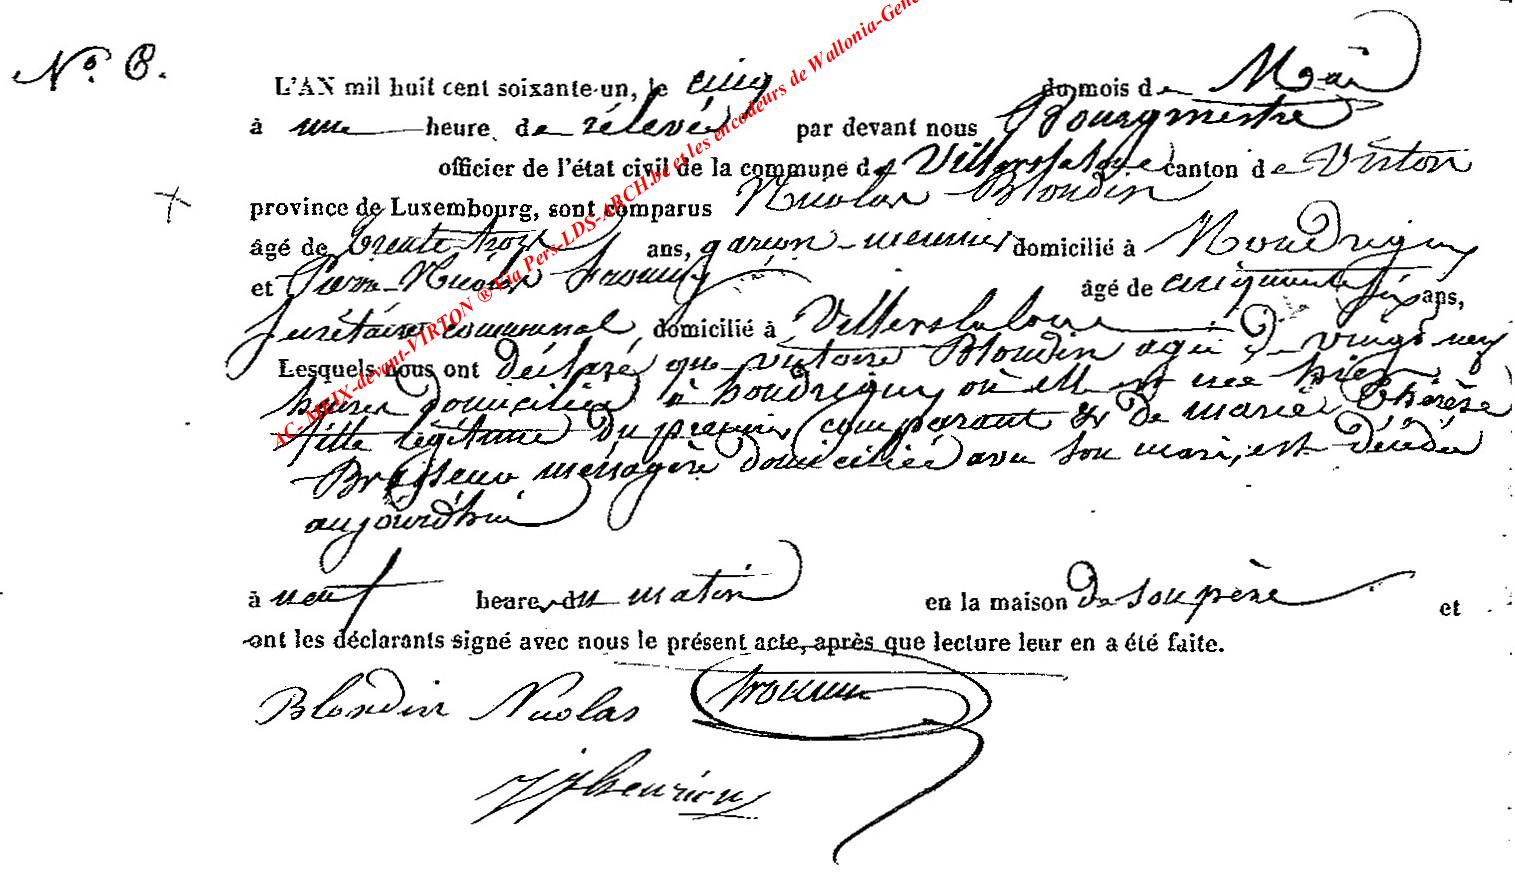 N° 8.
L'AN mil huit cent soixante-un, le cinq du mois de Mai
à une heure de rélevée par devant nous Bourgmestre
officier de l'état civil de la commune de Villerslaloue canton de Virton
province de Luxembourg, sont comparus Nicolas Blondin
âgé de trente trois ans, garçon-meunier domicilié à Houdrigny
et Pierre-Nicolas âgé de cinquante six ans,
Secrétaire communal, domicilié à Villerslaloue
Lesquels nous ont déclaré que victoire Blondin agée de vingt neuf
heures domiciliée à houdrigny où elle est née hier
fille légitime du premier comparant & de marie Thérèse
ménagère domiciliée avec son mari, est décédée
aujourd'hui
à neuf heures du matin en la maison de son père et
ont les déclarants signé avec nous le présent acte, après que lecture leur en a été faite.
Blondin Nicolas
AC-MEIX-devant-VIRTON ® Via Pers-LDS-ARCH.be et les encodeurs de Wallonia-Gene